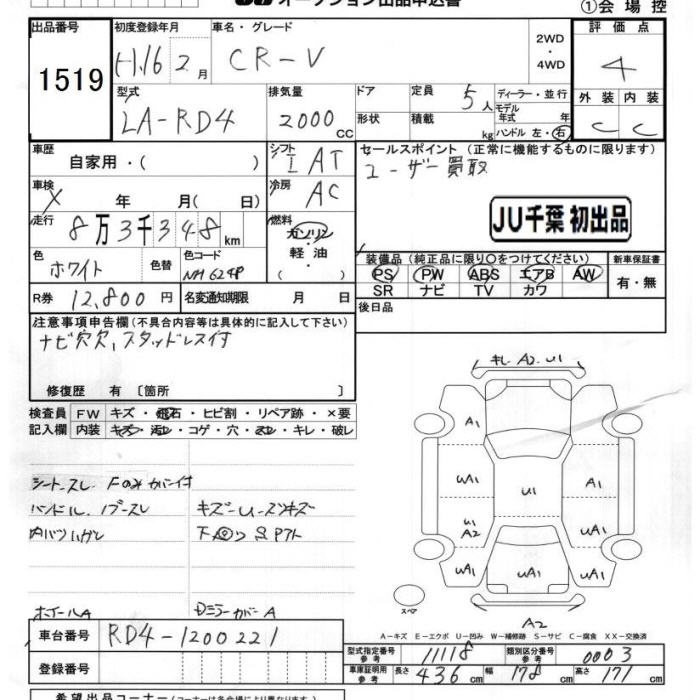 オークション出品申込書
①会場控
出品番号
1519
初度登録年月
H16 2月
車名・グレード
CR-V
2WD
・
4WD
評価点
4
外装 内装
C C
型式
LA-RD4
排気量
2000cc
ドア
形状
定員
5人
積載
kg
ディーラー・並行
モデル
年式 年
ハンドル 左・右
車歴
自家用・( )
シフト
I AT
セールスポイント(正常に機能するものに限ります)
ユーザー買取
JU千葉 初出品
車検
X 年 月( 日)
冷房
AC
走行
8万3千348km
燃料
ガソリン
・
軽油
・
( )
色
ホワイト
色替
色カラーコード
NH624P
装備品(純正品に限り○をつけてください)
PS PW ABS エアB AW
SR ナビ TV カワ
新車保証書
有・無
R券 12,800円
名変通知期限 月 日
後日品
注意事項申告欄(不具合内容等は具体的に記入して下さい)
ナビ穴欠,スタッドレス付
修復歴 有〔箇所 〕
検査員 FW キズ・飛石・ヒビ割・リペア跡・×要
記入欄 内装 キズ・汚レ・コゲ・穴・スレ・キレ・破レ
シートスレ Fのみカバー付
ハンドル
キズ-U-ズキズ
内バリハガレ
ホイールA
Dミラーカバー A
キレ A2 U1
A1
UA1 U1 A1
U1
A2 UA1
UA1 UA1 UA1
スペア
A2
A-キズ E-エクボ U-凹み W-補修跡 S-サビ C-腐食 XX-交換済
車台番号 RD4-1200221
登録番号
型式指定番号
参考
11118
類別区分番号
参考
0003
車庫証明用
参考
長さ 436cm 幅 178cm 高さ 171cm
希望出品コーナー